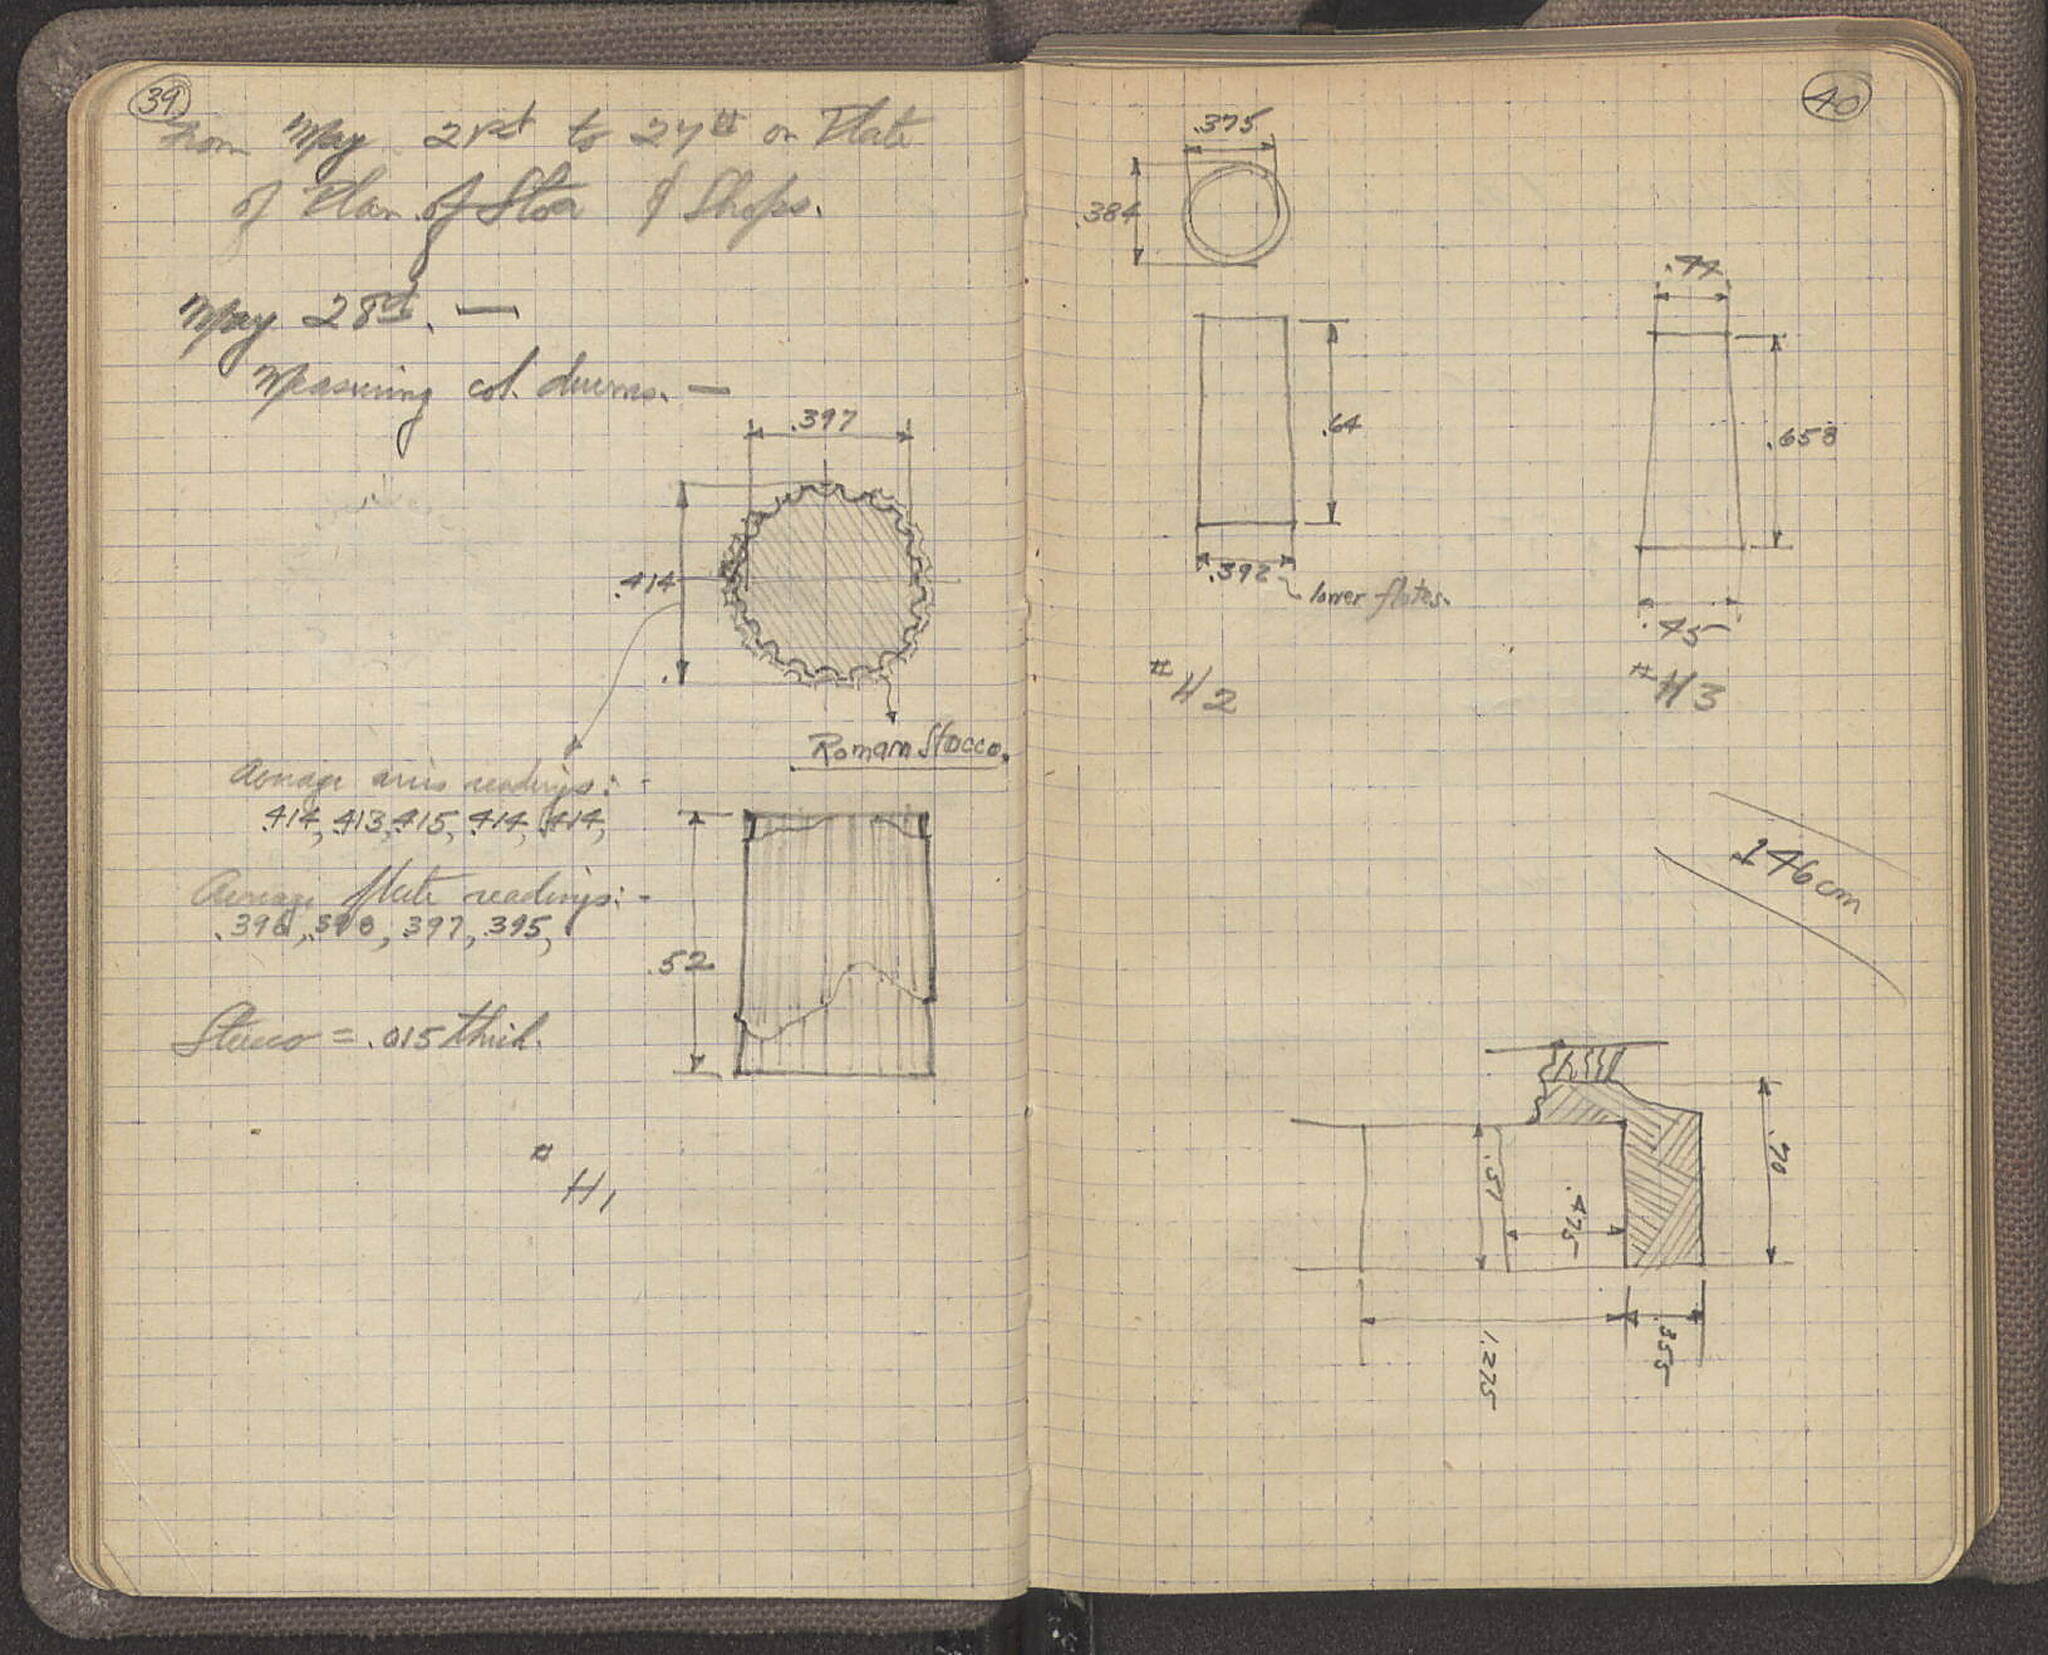 39
From May 21st to 27th on Plate
of Plan of Stoa & Shops.
May 28th. —
Measuring col. drums. —
.397
.414
Roman Stocco.
Average aris readings: -
.414, .413, .415, .414, .414,
Average flute readings: -
.396, .398, .397, .395,
.52
Stucco = .015 thick.
# H1
40
.375
.384
.44
.64
.658
.392
lower flutes.
.45
# H2
# H3
146cm
.70
.51
.475
1.275
.355